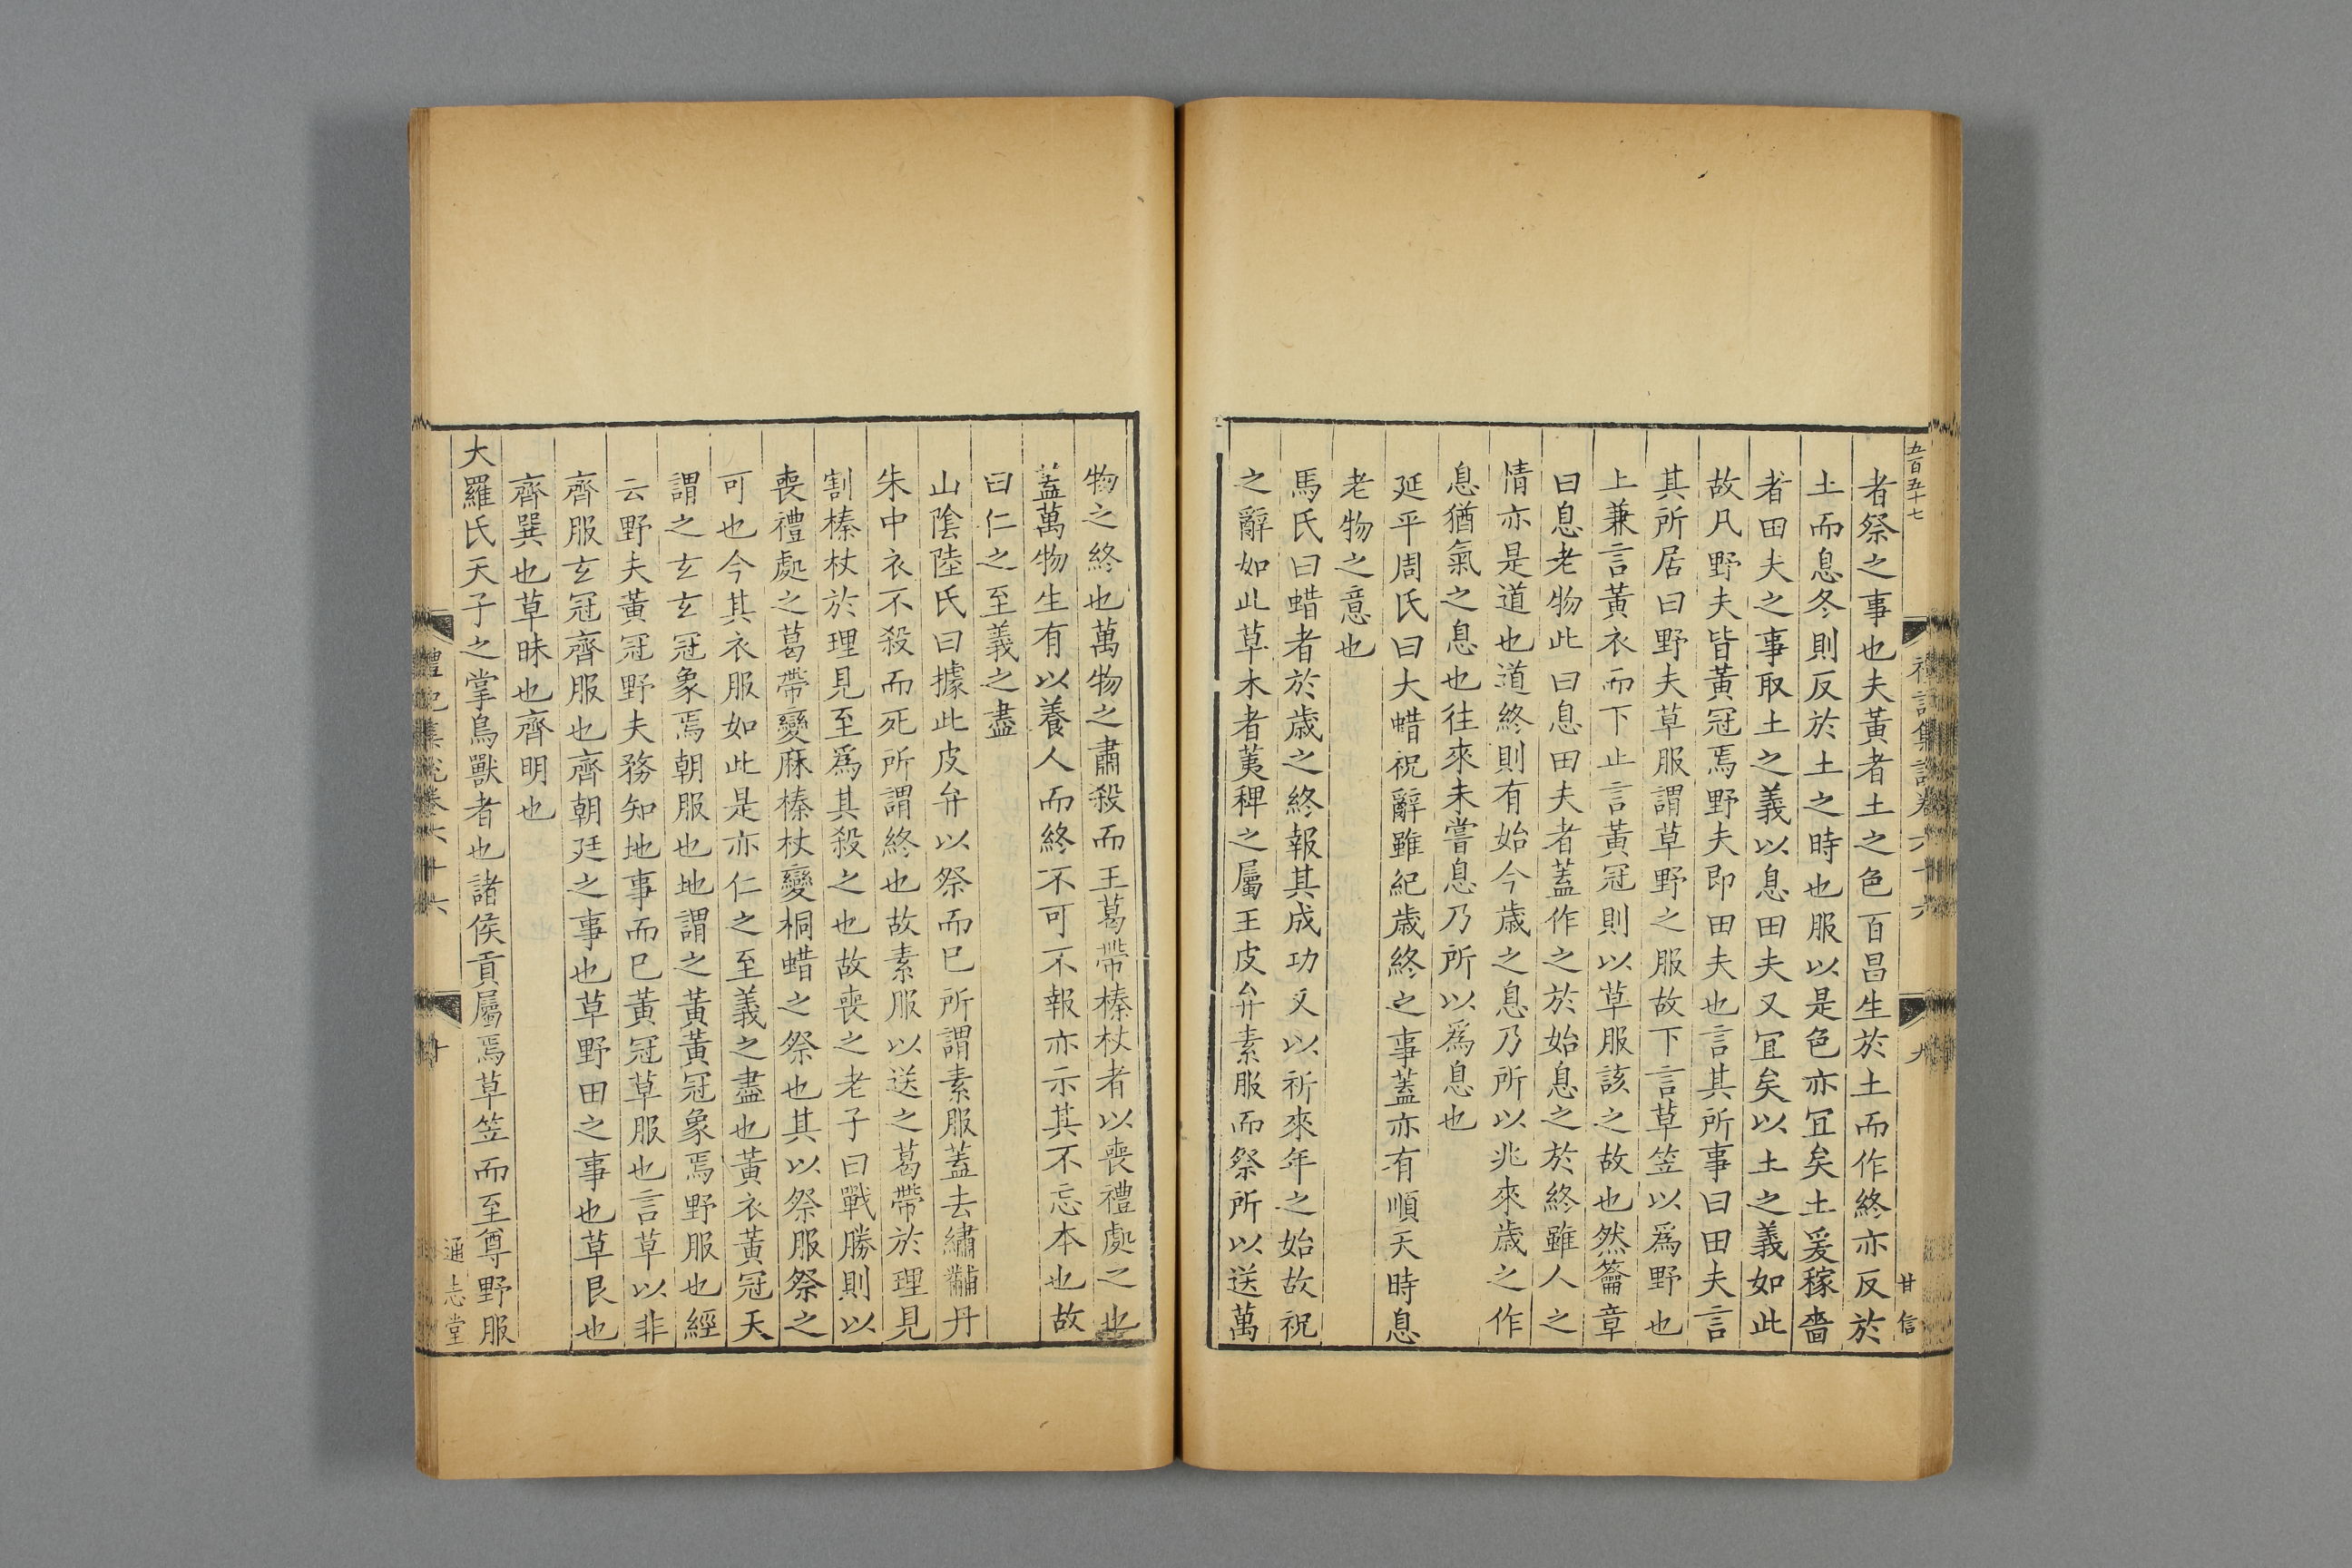 五百五十七
禮記集說卷六十六
九
甘信
者祭之事也夫黃者土之色百昌生於土而作終亦反於
土而息冬則反於土之時也服以是色亦宜矣土爰稼穡
者田夫之事取土之義以息田夫又宜矣以土之義如此
故凡野夫皆黃冠焉野夫即田夫也言其所事曰田夫言
其所居曰野夫草服謂草野之服故下言草笠以爲野也
上兼言黃衣而下止言黃冠則以草服該之故也然籥章
曰息老物此曰息田夫者蓋作之於始息之於終雖人之
情亦是道也道終則有始今歲之息乃所以兆來歲之作
息猶氣之息也往來未嘗息乃所以爲息也
延平周氏曰大蜡祝辭雖紀歲終之事蓋亦有順天時息
老物之意也
馬氏曰蜡者於歲之終報其成功又以祈來年之始故祝
之辭如此草木者荑稗之屬王皮弁素服而祭所以送萬
物之終也萬物之肅殺而王葛帶榛杖者以喪禮處之也
蓋萬物生有以養人而終不可不報亦示其不忘本也故
曰仁之至義之盡
山陰陸氏曰據此皮弁以祭而已所謂素服蓋去繡黼丹
朱中衣不殺而死所謂終也故素服以送之葛帶於理見
割榛杖於理見至爲其殺之也故喪之老子曰戰勝則以
喪禮處之葛帶變麻榛杖變桐蜡之祭也其以祭服祭之
可也今其衣服如此是亦仁之至義之盡也黃衣黃冠天
謂之玄玄冠象焉朝服也地謂之黃黃冠象焉野服也經
云野夫黃冠野夫務知地事而已黃冠草服也言草以非
齊服玄冠齊服也齊朝廷之事也草野田之事也草艮也
齊巽也草昧也齊明也
大羅氏天子之掌鳥獸者也諸侯貢屬焉草笠而至尊野服
禮記集說卷六十六
十
通志堂